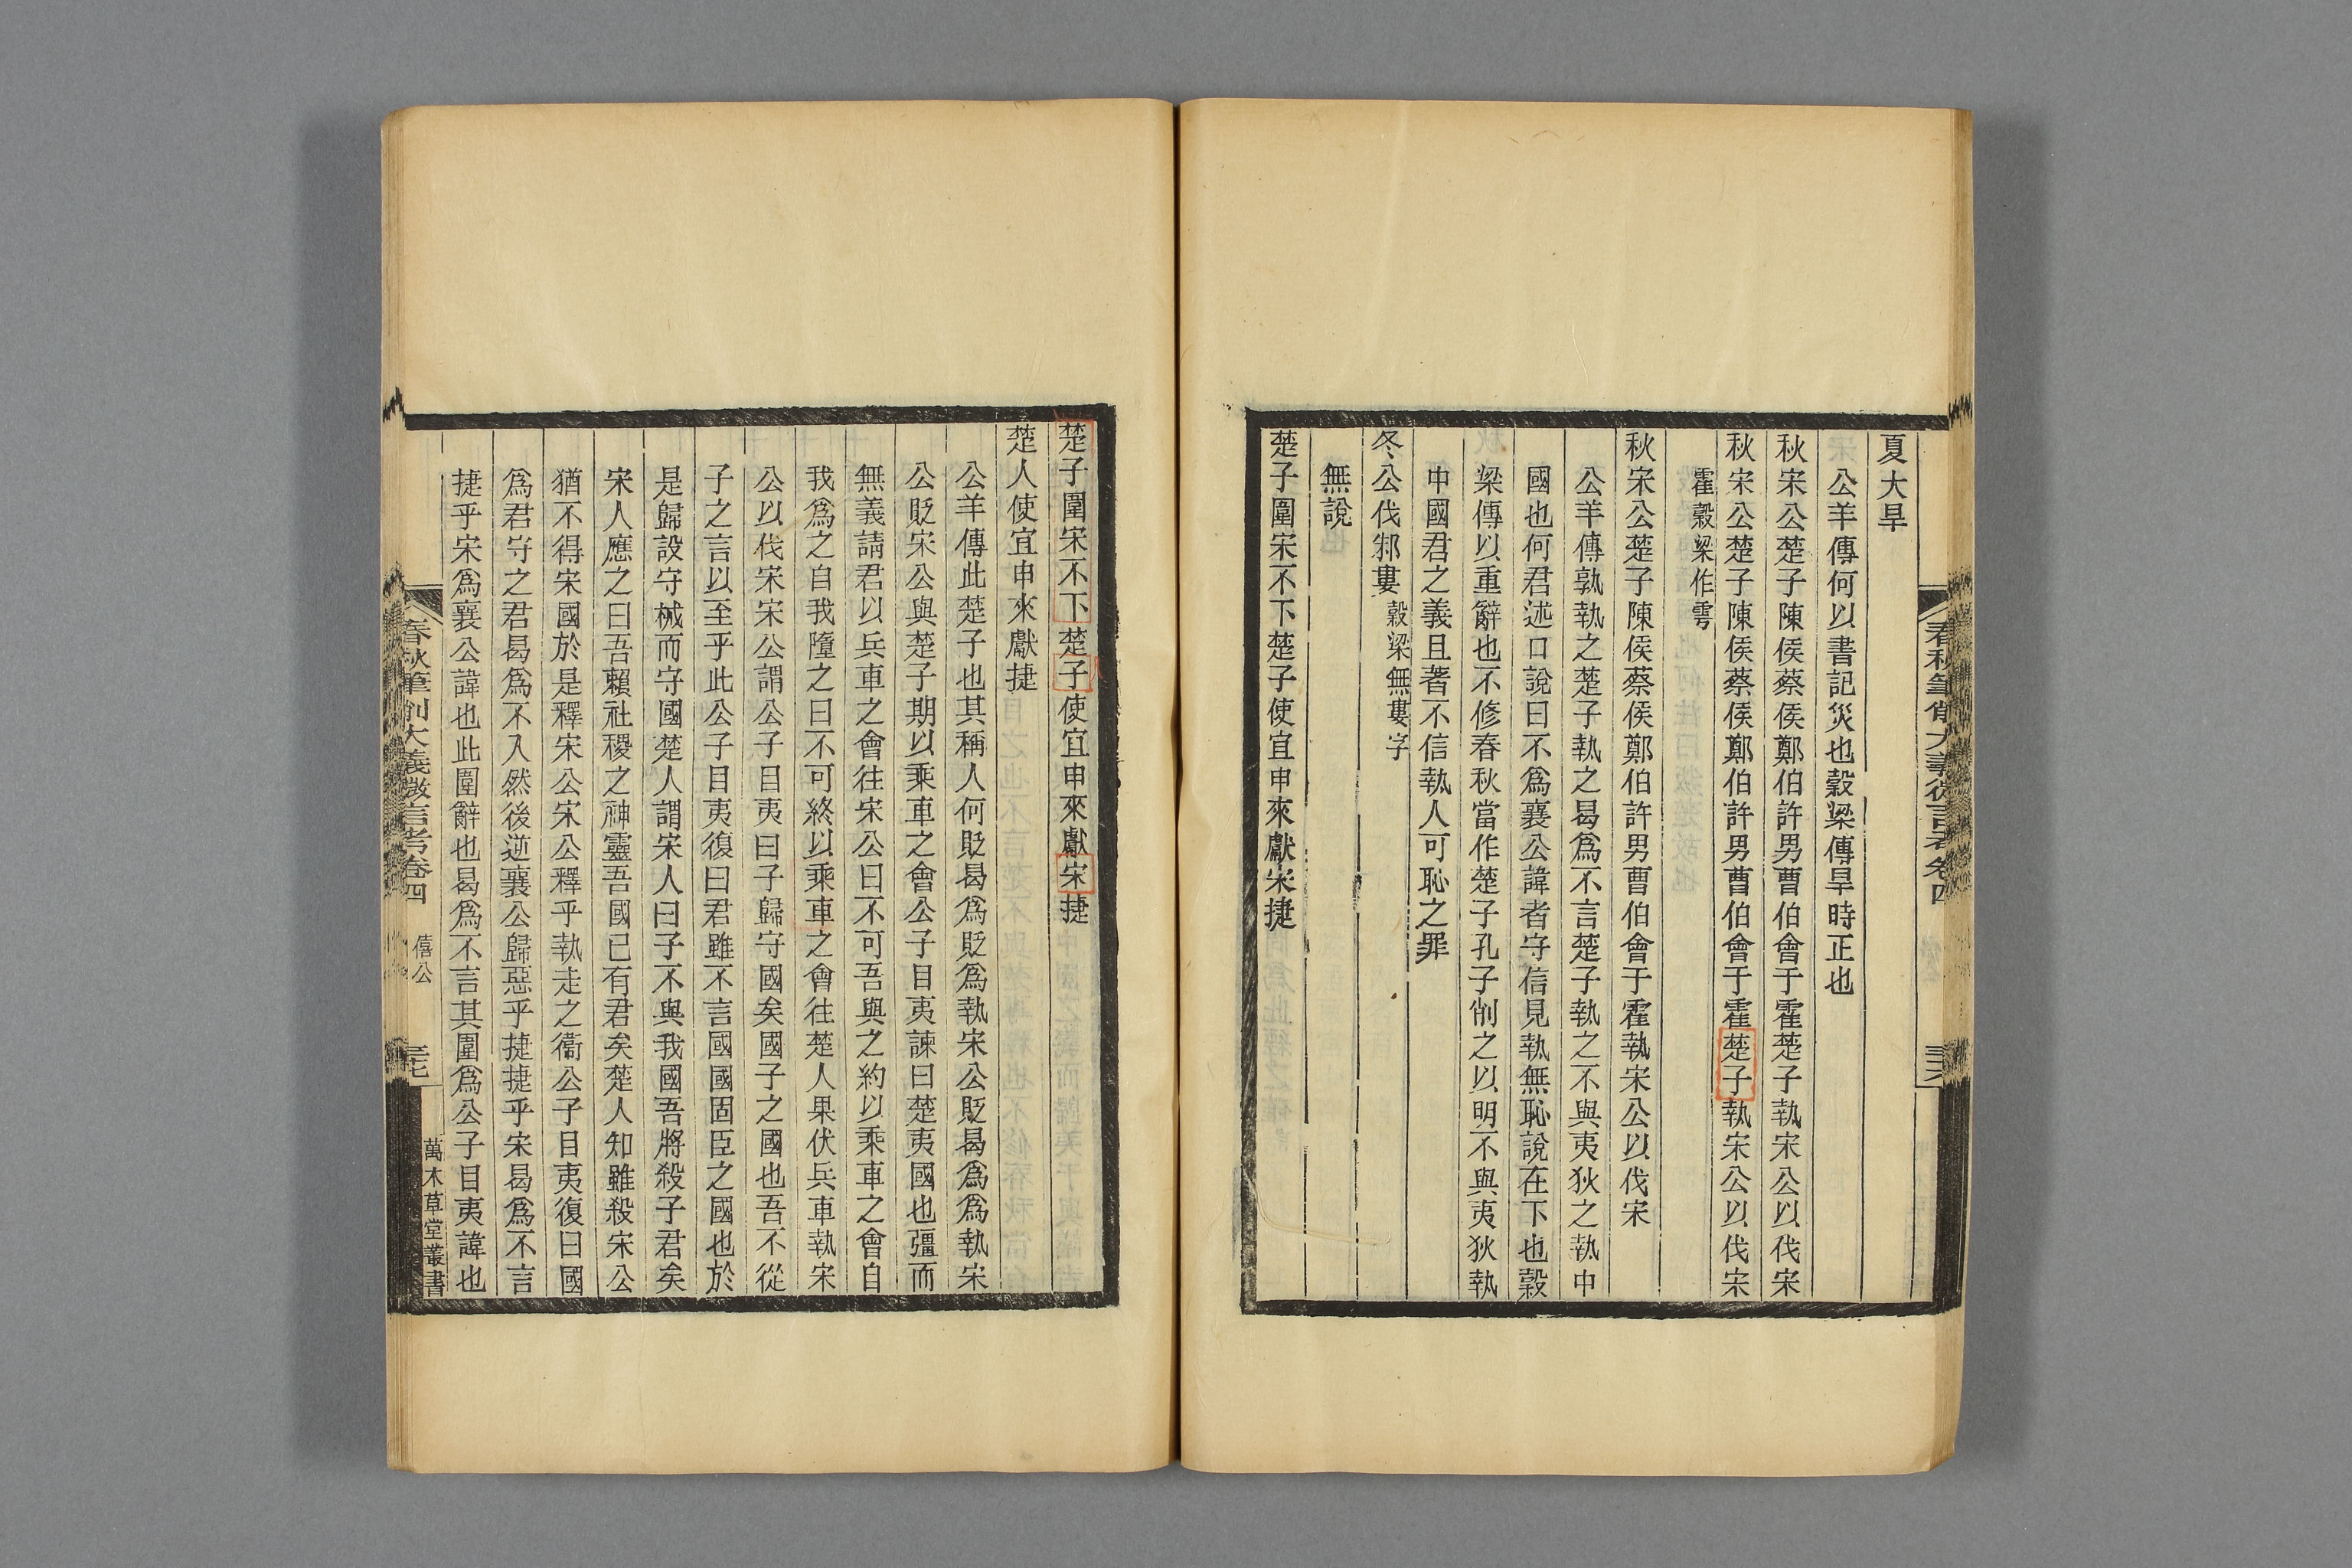 夏大旱
公羊傳何以書記災也穀梁傳旱時正也
秋宋公楚子陳侯蔡侯鄭伯許男曹伯會于霍楚子執宋公以伐宋
秋宋公楚子陳侯蔡侯鄭伯許男曹伯會于霍楚子執宋公以伐宋
霍穀梁作雩
秋宋公楚子陳侯蔡侯鄭伯許男曹伯會于霍執宋公以伐宋
公羊傳孰執之楚子執之曷爲不言楚子執之不與夷狄之執中
國也何君述口說曰不爲襄公諱者守信見執無恥說在下也穀
梁傳以重辭也不修春秋當作楚子孔子削之以明不與夷狄執
中國君之義且著不信執人可恥之罪
冬公伐邾婁穀梁無婁字
無說
楚子圍宋不下楚子使宜申來獻宋捷
春秋筆削大義微言考卷四
三十六
楚子圍宋不下楚子使宜申來獻宋捷
楚人使宜申來獻捷
公羊傳此楚子也其稱人何貶曷爲貶爲執宋公貶曷爲爲執宋
公貶宋公與楚子期以乘車之會公子目夷諫曰楚夷國也彊而
無義請君以兵車之會往宋公曰不可吾與之約以乘車之會自
我爲之自我墮之曰不可終以乘車之會往楚人果伏兵車執宋
公以伐宋宋公謂公子目夷曰子歸守國矣國子之國也吾不從
子之言以至乎此公子目夷復曰君雖不言國國固臣之國也於
是歸設守械而守國楚人謂宋人曰子不與我國吾將殺子君矣
宋人應之曰吾賴社稷之神靈吾國已有君矣楚人知雖殺宋公
猶不得宋國於是釋宋公宋公釋乎執走之衞公子目夷復曰國
爲君守之君曷爲不入然後逆襄公歸惡乎捷捷乎宋曷爲不言
捷乎宋爲襄公諱也此圍辭也曷爲不言其圍爲公子目夷諱也
春秋筆削大義微言考卷四
僖公
三十七
萬木草堂叢書